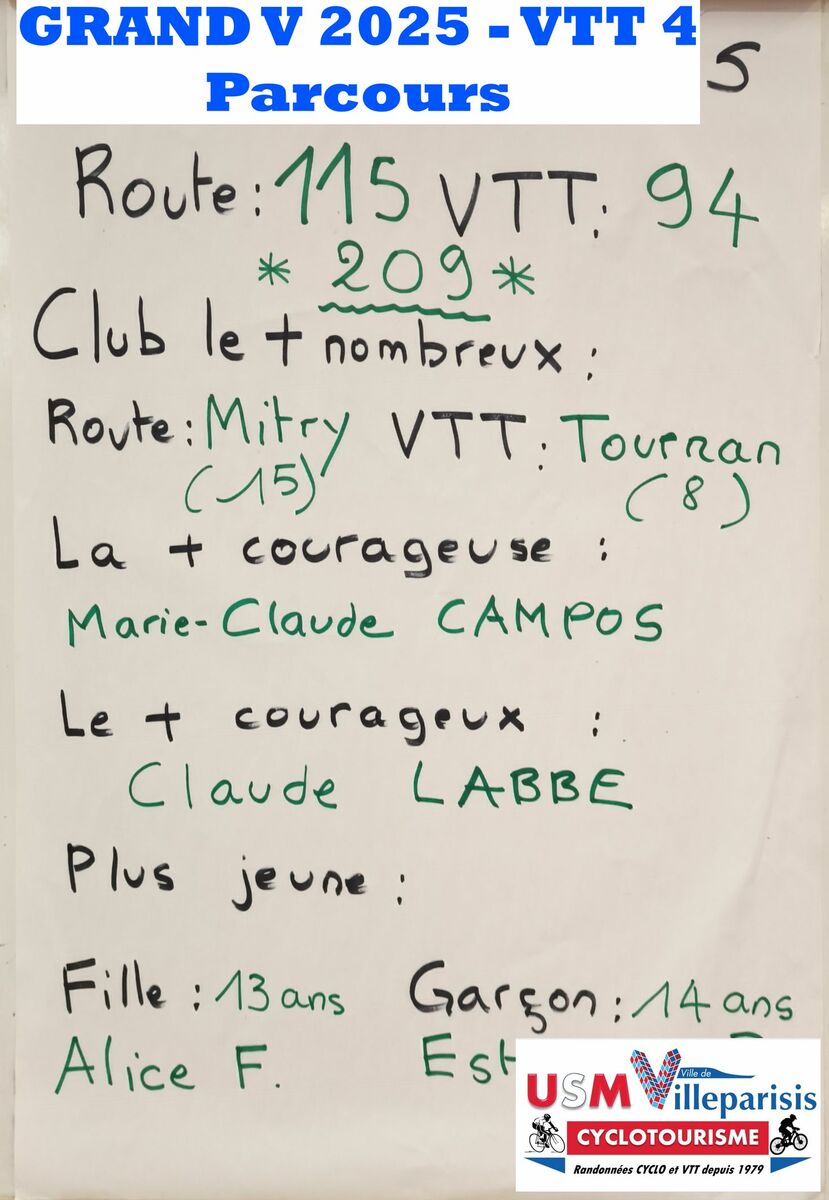 GRAND V 2025 - VTT 4
Parcours
5
Route: 115 VTT: 94
* 209 *
Club le + nombreux :
Route: Mitry VTT: Tournan
(15) (8)
La + courageuse :
Marie-Claude CAMPOS
Le + courageux :
Claude LABBE
Plus jeune :
Fille : 13 ans Garçon : 14 ans
Alice F.
USM Ville de Villeparisis
CYCLOTOURISME
Randonnées CYCLO et VTT depuis 1979